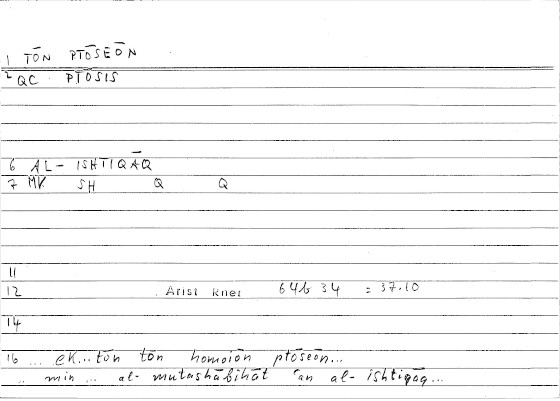 1 TŌN PTŌSEŌN
2 QC PTŌSIS
6 AL- ISHTIQĀQ
7 MV SH Q Q
11
12 Arist Rhet 64b 34 = 37.10
14
16 ... ek...tōn tōn homoiōn ptōseōn...
.. min ... al- mutashābihāt ʿan al- ishtiqāq...